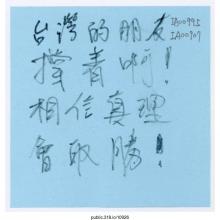 台灣的朋友
撐着啊!
相信真理
會取勝!
IA00995
IA00707
public.318.io/10926